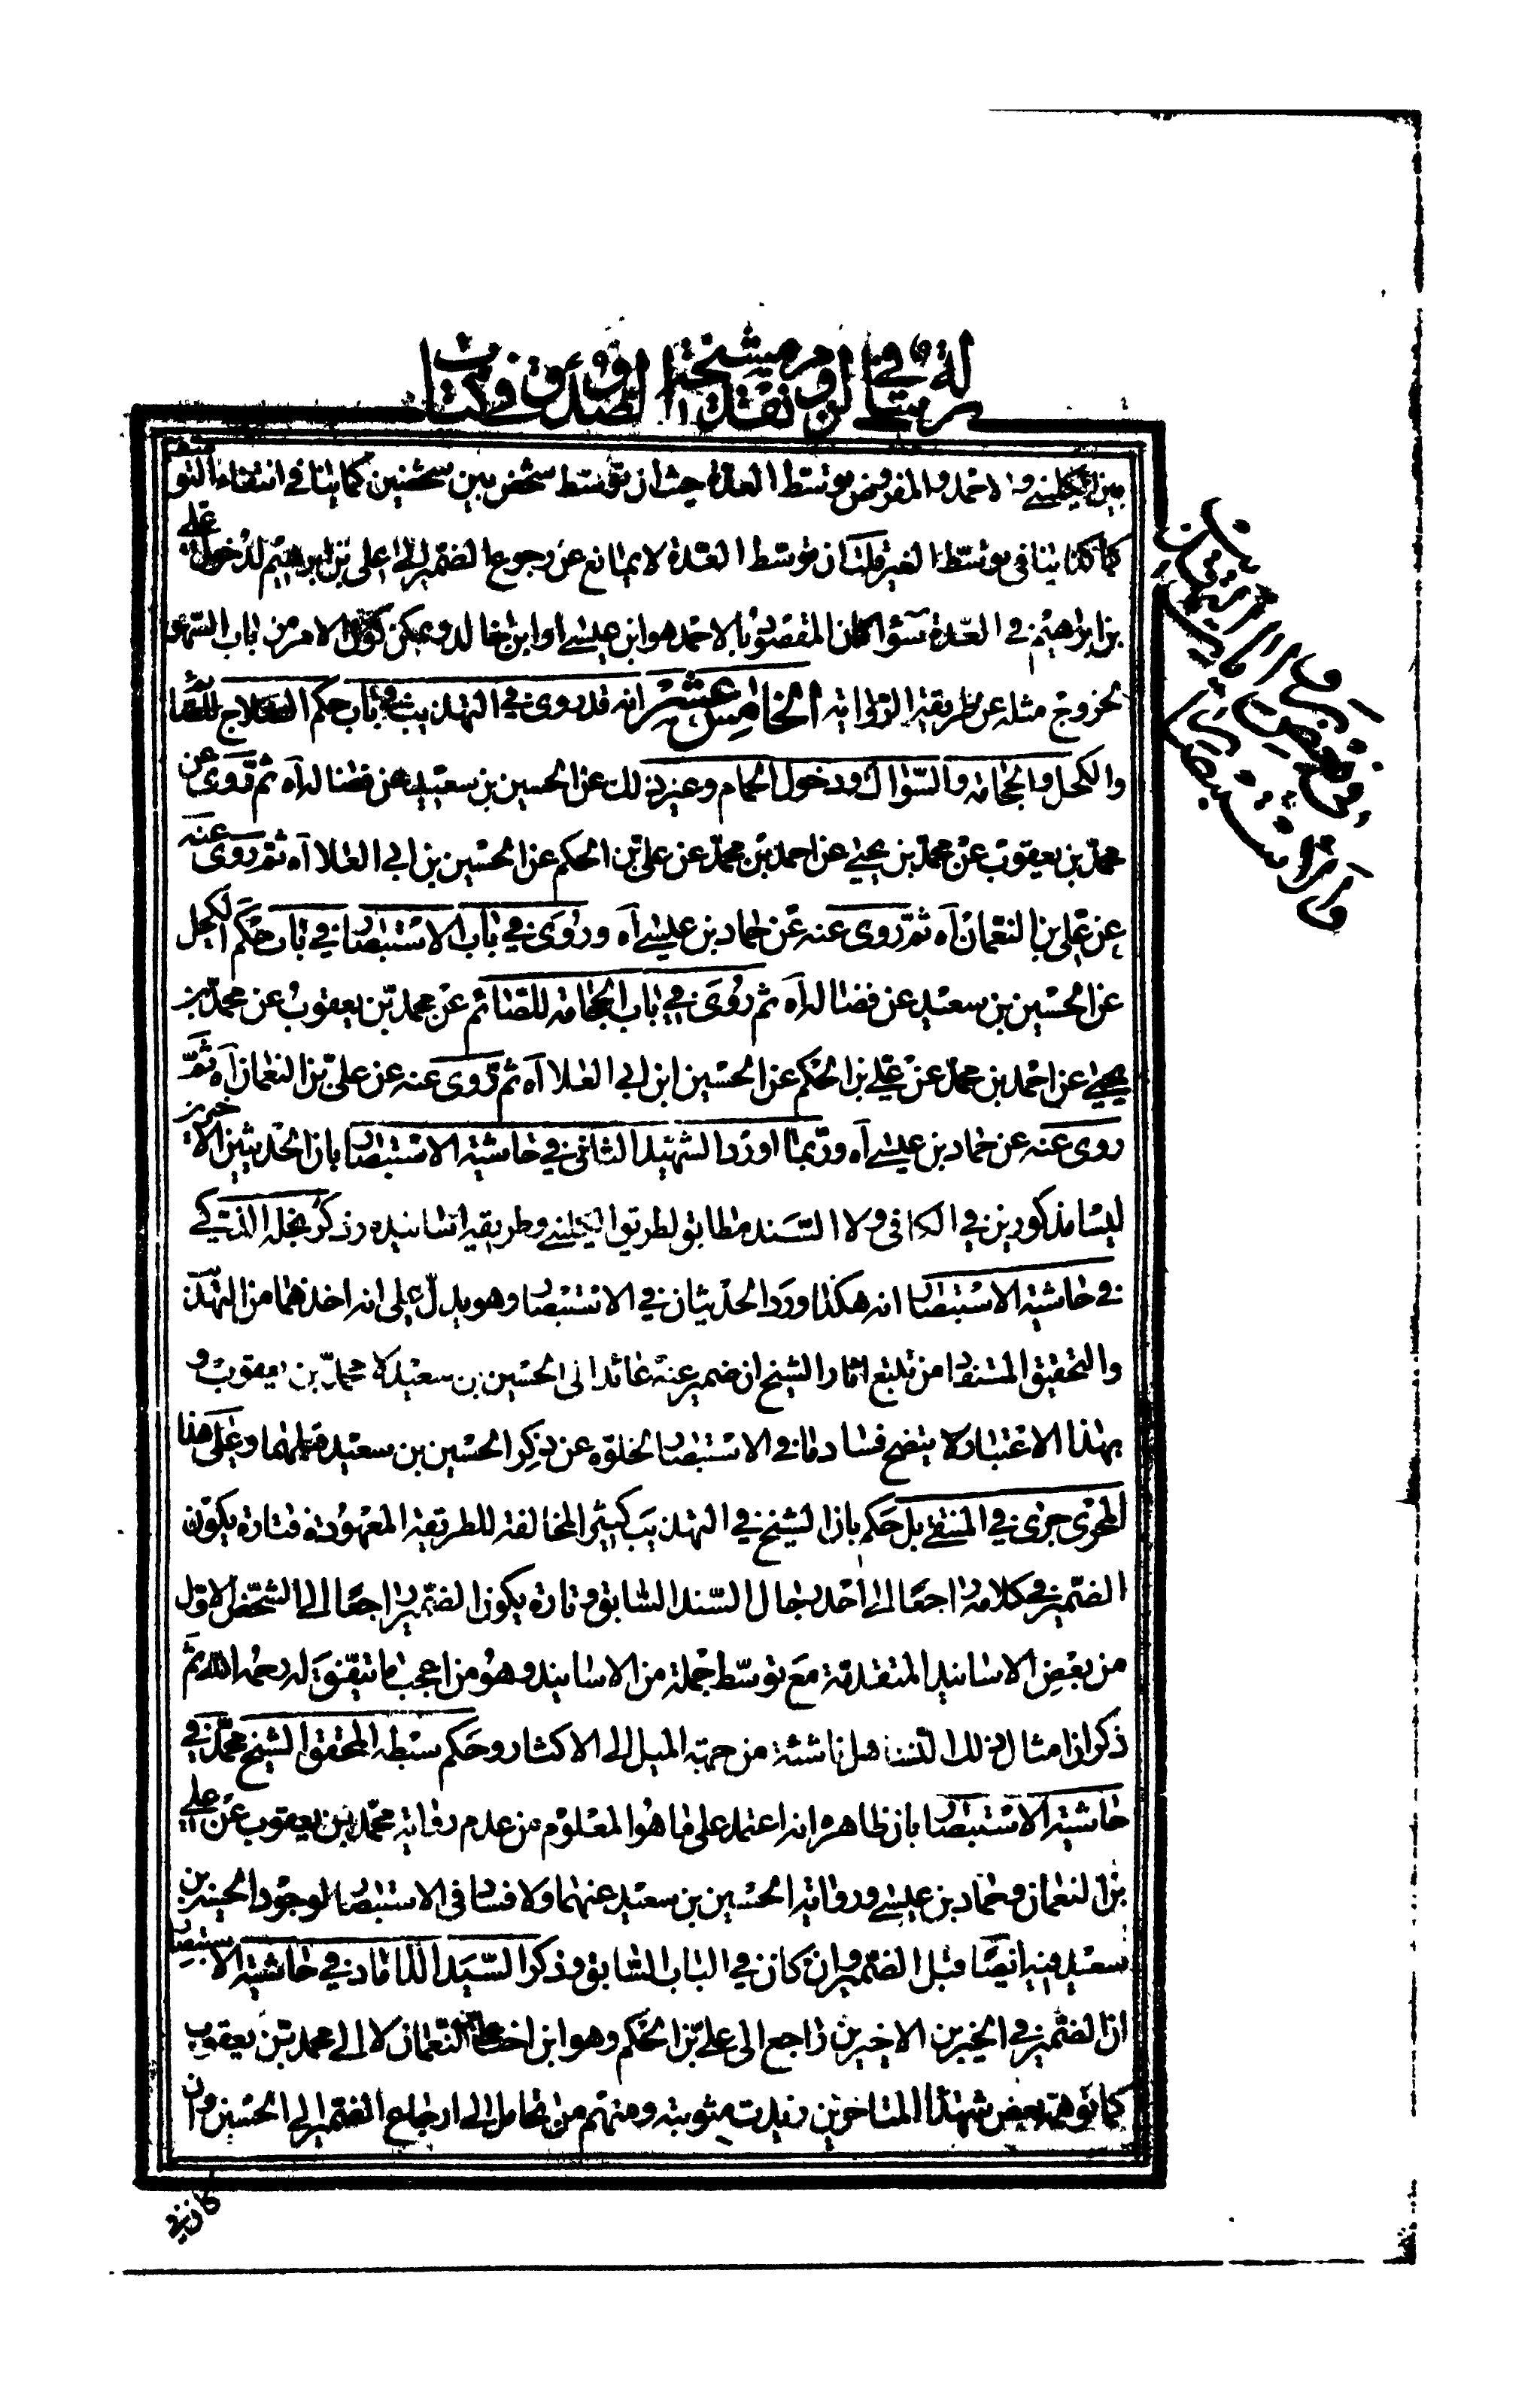 رسالة في
لزوم نقد مشيخة الصدوق و كتاب
بين الكليني و الاحمد و المفروض توسّط العدّة حيث ان توسّط شخص بين شخصين كما ينافي انتفاء التوسّط
كما كذا ينافي توسّط الغير قلت ان توسّط العدّة لا يمانع عن رجوع الضمير الى علي بن ابراهيم لدخول علي
بن ابراهيم في العدّة سواء كان المقصود بالاحمد هو ابن عيسى او ابن خالد و يمكن كون الامر من باب السّهو
لخروج مثله عن طريقة الرّواية الخامس عشر انه قد روى في التهذيب في باب حكم العلاج للصّائم
و الكحل و الحجامة و السّواك و دخول الحمام و غير ذلك عن الحسين بن سعيد عن فضالة آه ثم روى عن
محمد بن يعقوب عن محمد بن يحيى عن احمد بن محمد عن علي بن الحكم عن الحسين بن ابي العلا آه ثم روى عنه
عن علي بن النعمان آه ثم روى عنه عن حماد بن عيسى آه و روى في باب الاستبصار في باب حكم الكحل
عن الحسين بن سعيد عن فضالة آه ثم روى في باب الحجامة للصّائم عن محمد بن يعقوب عن محمد بن
يحيى عن احمد بن محمد عن علي بن الحكم عن الحسين ابن ابي العلا آه ثم روى عنه عن علي بن النعمان آه ثم
روى عنه عن حماد بن عيسى آه و ربّما اورد الشهيد الثاني في حاشية الاستبصار بان الحديثين الاخيرين
ليسا مذكورين في الكافي و لا السّند مطابق لطريق الكليني و طريقة اسانيده و ذكر نجله الذكي
في حاشية الاستبصار انه هكذا ورد الحديثان في الاستبصار و هو يدلّ على انه اخذهما من التهذيب
و التحقيق المستفاد من تتبع اثار الشيخ ان ضمير عنه عائد الى الحسين بن سعيد لا محمد بن يعقوب و
بهذا الاعتبار لا يتضح فساد ما في الاستبصار لخلوّه عن ذكر الحسين بن سعيد قبلهما و على هذا
المجرى جرى في المنتقى بل حكم بان الشيخ في التهذيب كثير المخالفة للطريقة المعهودة فتارة يكون
الضمير في كلامه راجعا الى احد رجال السّند السّابق و تارة يكون الضمير راجعا الى الشخص الاوّل
من بعض الاسانيد المتقدمة مع توسّط جملة من الاسانيد و هو من اعجب ما يتفق له رحمه الله ثم
ذكر ان امثال ذلك التساهل ناشئة من جهة الميل الى الاكثار و حكم سبطه المحقق الشيخ محمّد في
حاشية الاستبصار بان ظاهره انه اعتمد على ما هو المعلوم من عدم رواية محمّد بن يعقوب عن علي
بن النعمان و حماد بن عيسى و رواية الحسين بن سعيد عنهما و لا فساد في الاستبصار لوجود الحسين بن
سعيد فيه ايضا قبل الضمير و ان كان في الباب السّابق و ذكر السّيد الداماد في حاشية الاستبصار
ان الضمير في الخبرين الاخيرين راجع الى علي بن الحكم و هو ابن اخت علي بن النعمان لا الى محمد بن يعقوب
كما توهّمه بعض شهداء المتاخرين زيدت مثوبته و منهم من تحامل الى ارجاع الضمير الى الحسين و ان
كان في